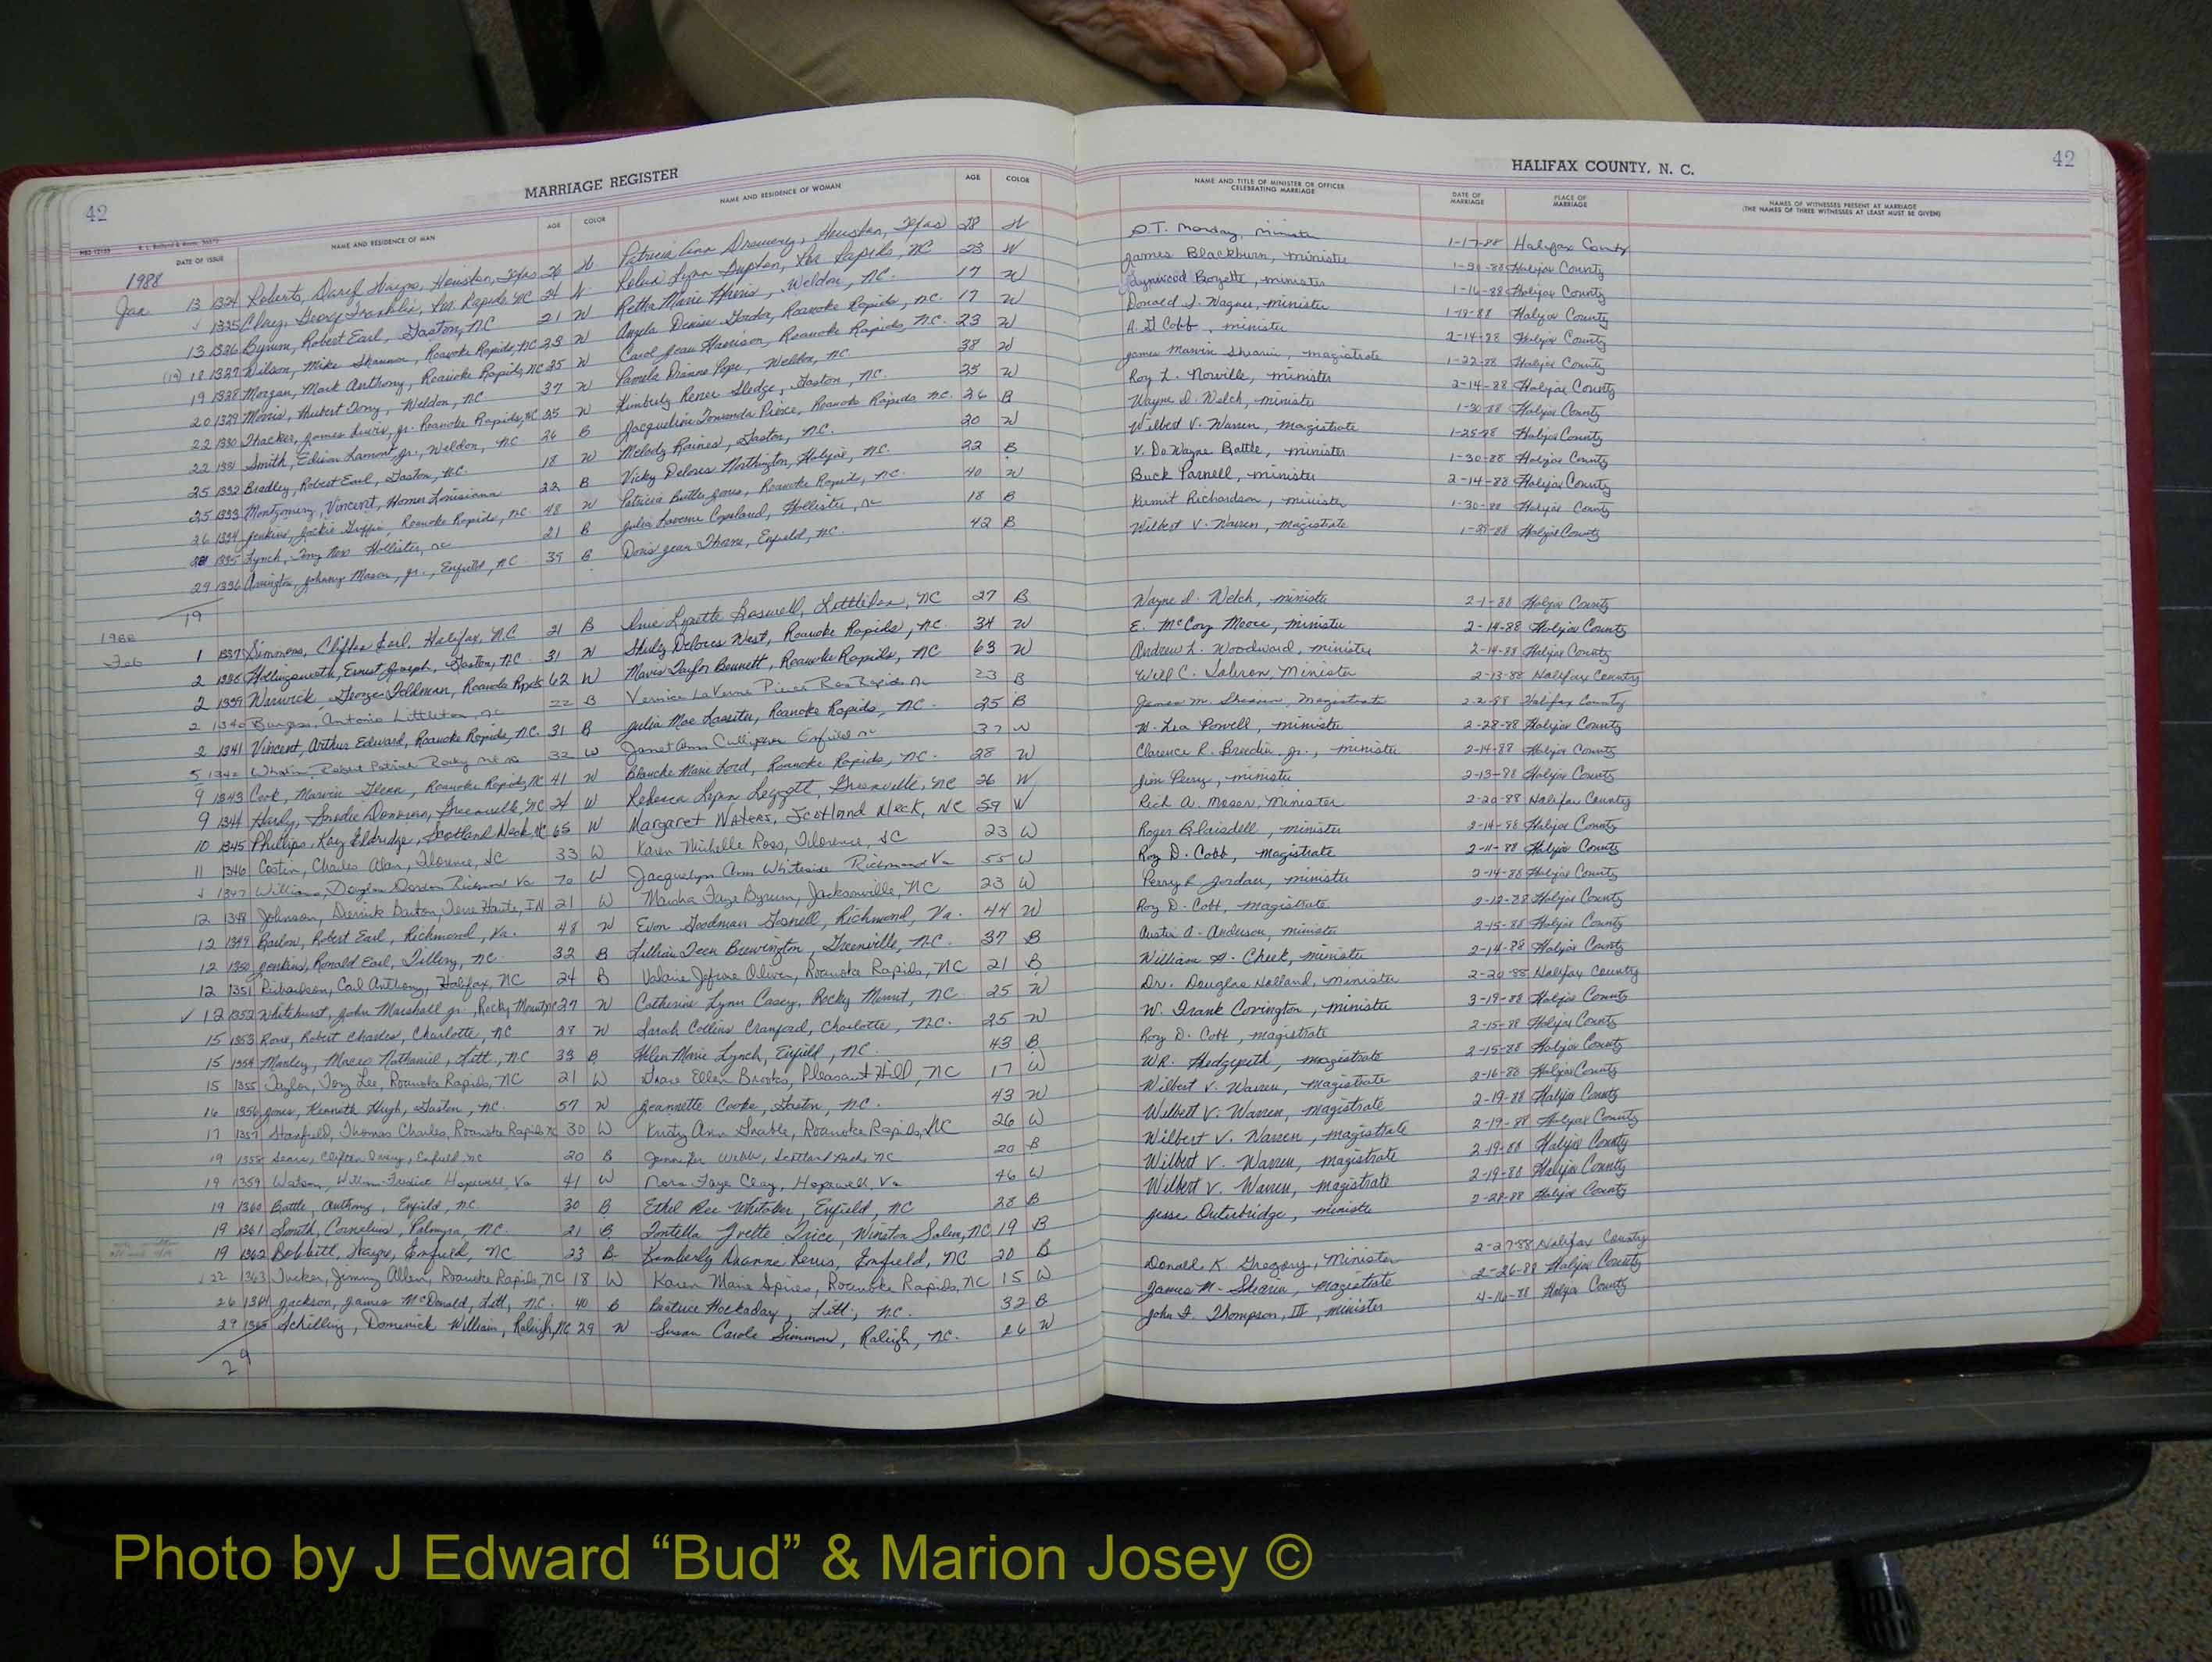 42
MARRIAGE REGISTER
HALIFAX COUNTY, N. C.
42
DATE OF ISSUE NAME AND RESIDENCE OF MAN AGE COLOR NAME AND RESIDENCE OF WOMAN AGE COLOR NAME AND TITLE OF MINISTER OR OFFICER CELEBRATING MARRIAGE DATE OF MARRIAGE PLACE OF MARRIAGE NAMES OF WITNESSES PRESENT AT MARRIAGE (THE NAMES OF THREE WITNESSES AT LEAST MUST BE GIVEN)
1988
Jan 13 1324 Roberts, Houston, Texas 26 W Patricia Ann Houston, Texas 28 W minister 1-17-88 Halifax County
1325 George Franklin, Rapids, NC 24 W Lynn Rapids, NC 23 W James Blackburn, minister Halifax County
13 1326 Bynum, Robert Earl, Gaston, NC 21 W Retha Marie Weldon, NC. 17 W minister 1-16-88 Halifax County
(19) 18 1327 Mike Roanoke Rapids, NC 23 W Angela Denise Roanoke Rapids, NC. 17 W Donald J. Wagner, minister 1-19-88 Halifax County
19 1328 Morgan, Mark Anthony, Roanoke Rapids, NC 25 W Carol Jean Harrison, Roanoke Rapids, N.C. 23 W Cobb, minister 2-14-88 Halifax County
20 1329 Hubert Tony, Weldon, NC 37 W Pamela Dianne Pope, Weldon, NC 38 W James Marvin Shearin, magistrate 1-22-88 Halifax County
22 1330 Thacker, James Lewis, Jr. Roanoke Rapids, NC 25 W Kimberly Renee Sledge, Gaston, NC. 25 W Roy L. Norville, minister 2-14-88 Halifax County
22 1331 Smith, Edison Lamont, Jr., Weldon, NC 26 B Jacqueline Pierce, Roanoke Rapids NC. 26 B Wayne D. Welch, minister 1-30-88 Halifax County
25 1332 Bradley, Robert Earl, Gaston, NC. 18 W Melody Raines, Gaston, NC. 20 W Wilbert V. Warren, magistrate 1-25-88 Halifax County
25 1333 Montgomery, Vincent, Homer Louisiana 22 B Vicky Delores Northington, Halifax, NC. 22 B V. DeWayne Battle, minister 1-30-88 Halifax County
26 1334 Jenkins, Jackie Roanoke Rapids, NC 48 W Patricia Butler Jones, Roanoke Rapids, NC. 40 W Buck Parnell, minister 2-14-88 Halifax County
28 1335 Lynch, Tony Hollister, NC 21 B Julia Laverne Copeland, Hollister, NC 18 B Kermit Richardson, minister 1-30-88 Halifax County
29 1336 Arrington, Johnny Mason, Jr., Enfield, NC 39 B Doris Jean Thorne, Enfield, NC. 42 B Wilbert V. Warren, magistrate Halifax County
19
1988
Feb 1 1337 Simmons, Clifton Earl, Halifax, NC 21 B Lynette Littleton, NC 27 B Wayne D. Welch, minister 2-1-88 Halifax County
2 1338 Hollingsworth, Ernest Joseph, Gaston, NC. 31 W Shirley Delores West, Roanoke Rapids, NC. 34 W E. McCoy Moore, minister 2-14-88 Halifax County
2 1339 Warwick, George Roanoke Rapids 62 W Mavis Taylor Bennett, Roanoke Rapids, NC 63 W Andrew L. Woodward, minister 2-14-88 Halifax County
2 1340 Burgess, Antonio Littleton, NC 22 B Vernice LaVerne Pierce NC 23 B Will C. Minister 2-13-88 Halifax County
2 1341 Vincent, Arthur Edward, Roanoke Rapids, NC. 31 B Julia Mae Lassiter, Roanoke Rapids, NC. 25 B James M. Shearin, Magistrate 2-2-88 Halifax County
5 1342 Robert Patrick Rocky 32 W Janet Ann Enfield NC 37 W W. Lea Powell, minister 2-28-88 Halifax County
9 1343 Cook, Marvin Glenn, Roanoke Rapids, NC 41 W Blanche Marie Ford, Roanoke Rapids, NC. 38 W Clarence R. Breedin, Jr., minister 2-14-88 Halifax County
9 1344 Hardy, Donovan, Greenville, NC 24 W Rebecca Lynn Leggett, Greenville, NC 26 W Jim Perry, minister 2-13-88 Halifax County
10 1345 Phillips, Kay Eldridge, Scotland Neck, NC 65 W Margaret Waters, Scotland Neck, NC 59 W Rich A. Moser, Minister 2-20-88 Halifax County
11 1346 Costin, Charles Alan, Florence, SC 33 W Karen Michelle Ross, Florence, SC 23 W Roger Blaisdell, minister 2-14-88 Halifax County
1347 Williams, Douglas Gordon Richmond Va 70 W Jacquelyn Ann Whiteside Richmond Va 55 W Roy D. Cobb, magistrate 2-11-88 Halifax County
12 1348 Johnson, Derrick Barton, Terre Haute, IN 21 W Marsha Faye Bynum, Jacksonville, NC 23 W Perry R. Jordan, minister 2-14-88 Halifax County
12 1349 Barlow, Robert Earl, Richmond, Va. 48 W Evon Goodman Richmond, Va. 44 W Roy D. Cobb, magistrate 2-12-88 Halifax County
12 1350 Jenkins, Ronald Earl, Tillery, NC. 32 B Lillian Teen Brewington, Greenville, NC. 37 B Austin A. Anderson, minister 2-15-88 Halifax County
12 1351 Richardson, Carl Anthony, Halifax, NC 24 B Valarie Oliver, Roanoke Rapids, NC 21 B William A. Cheek, minister 2-14-88 Halifax County
✓ 12 1352 Whitehurst, John Marshall Jr., Rocky Mount NC 27 W Catherine Lynn Casey, Rocky Mount, NC. 25 W Dr. Douglas Holland, minister 2-20-88 Halifax County
15 1353 Rose, Robert Charles, Charlotte, NC 28 W Sarah Collins Cranford, Charlotte, NC. 25 W W. Frank Covington, minister 3-19-88 Halifax County
15 1354 Manley, Nathaniel, Litt., NC 33 B Helen Marie Lynch, Enfield, NC. 43 B Roy D. Cobb, magistrate 2-15-88 Halifax County
15 1355 Taylor, Tony Lee, Roanoke Rapids, NC 21 W Ellen Brooks, Pleasant Hill, NC 17 W W.R. Hedgepeth, magistrate 2-15-88 Halifax County
16 1356 Jones, Kenneth Hugh, Gaston, NC. 57 W Jeannette Cooke, Gaston, NC. 43 W Wilbert V. Warren, magistrate 2-16-88 Halifax County
17 1357 Stanfield, Thomas Charles, Roanoke Rapids NC 30 W Kristy Ann Roanoke Rapids, NC 26 W Wilbert V. Warren, magistrate 2-19-88 Halifax County
19 1358 Clifton Enfield NC 20 B Jennifer Webb, Scotland Neck NC 20 B Wilbert V. Warren, magistrate 2-19-88 Halifax County
19 1359 Watson, William Hopewell, Va 41 W Nora Faye Clay, Hopewell, Va 46 W Wilbert V. Warren, magistrate 2-19-88 Halifax County
19 1360 Battle, Anthony, Enfield, NC. 30 B Ethel Ree Whitaker, Enfield, NC 28 B Wilbert V. Warren, magistrate 2-19-88 Halifax County
19 1361 Smith, Cornelius, Palmyra, NC. 21 B Yvette Trice, Winston Salem, NC 19 B Jesse Outerbridge, minister 2-28-88 Halifax County
19 1362 Bobbitt, Wayne, Enfield, NC 23 B Kimberly Dianne Enfield, NC 20 B
22 1363 Tucker, Jimmy Allen, Roanoke Rapids, NC 18 W Karen Marie Spires, Roanoke Rapids, NC 15 W Donald K. Gregory, Minister 2-27-88 Halifax County
26 1364 Jackson, James McDonald, Litt., NC. 40 B Beatrice Hockaday, Litt., NC. 32 B James M. Shearin, magistrate 2-26-88 Halifax County
29 1365 Schilling, Domenick William, Raleigh, NC 29 W Susan Carole Simmons, Raleigh, NC. 26 W John F. Thompson, III, minister 4-16-88 Halifax County
29
Photo by J Edward “Bud” & Marion Josey ©